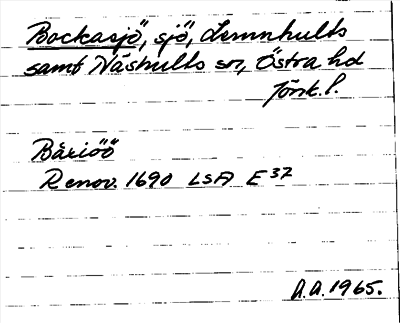 Bockasjö, sjö, Lemnhults
samt Näshults sn, Östra hd
Jönk. l.
Båxiöö
Renov. 1690 LSA E 37
A.A. 1965.